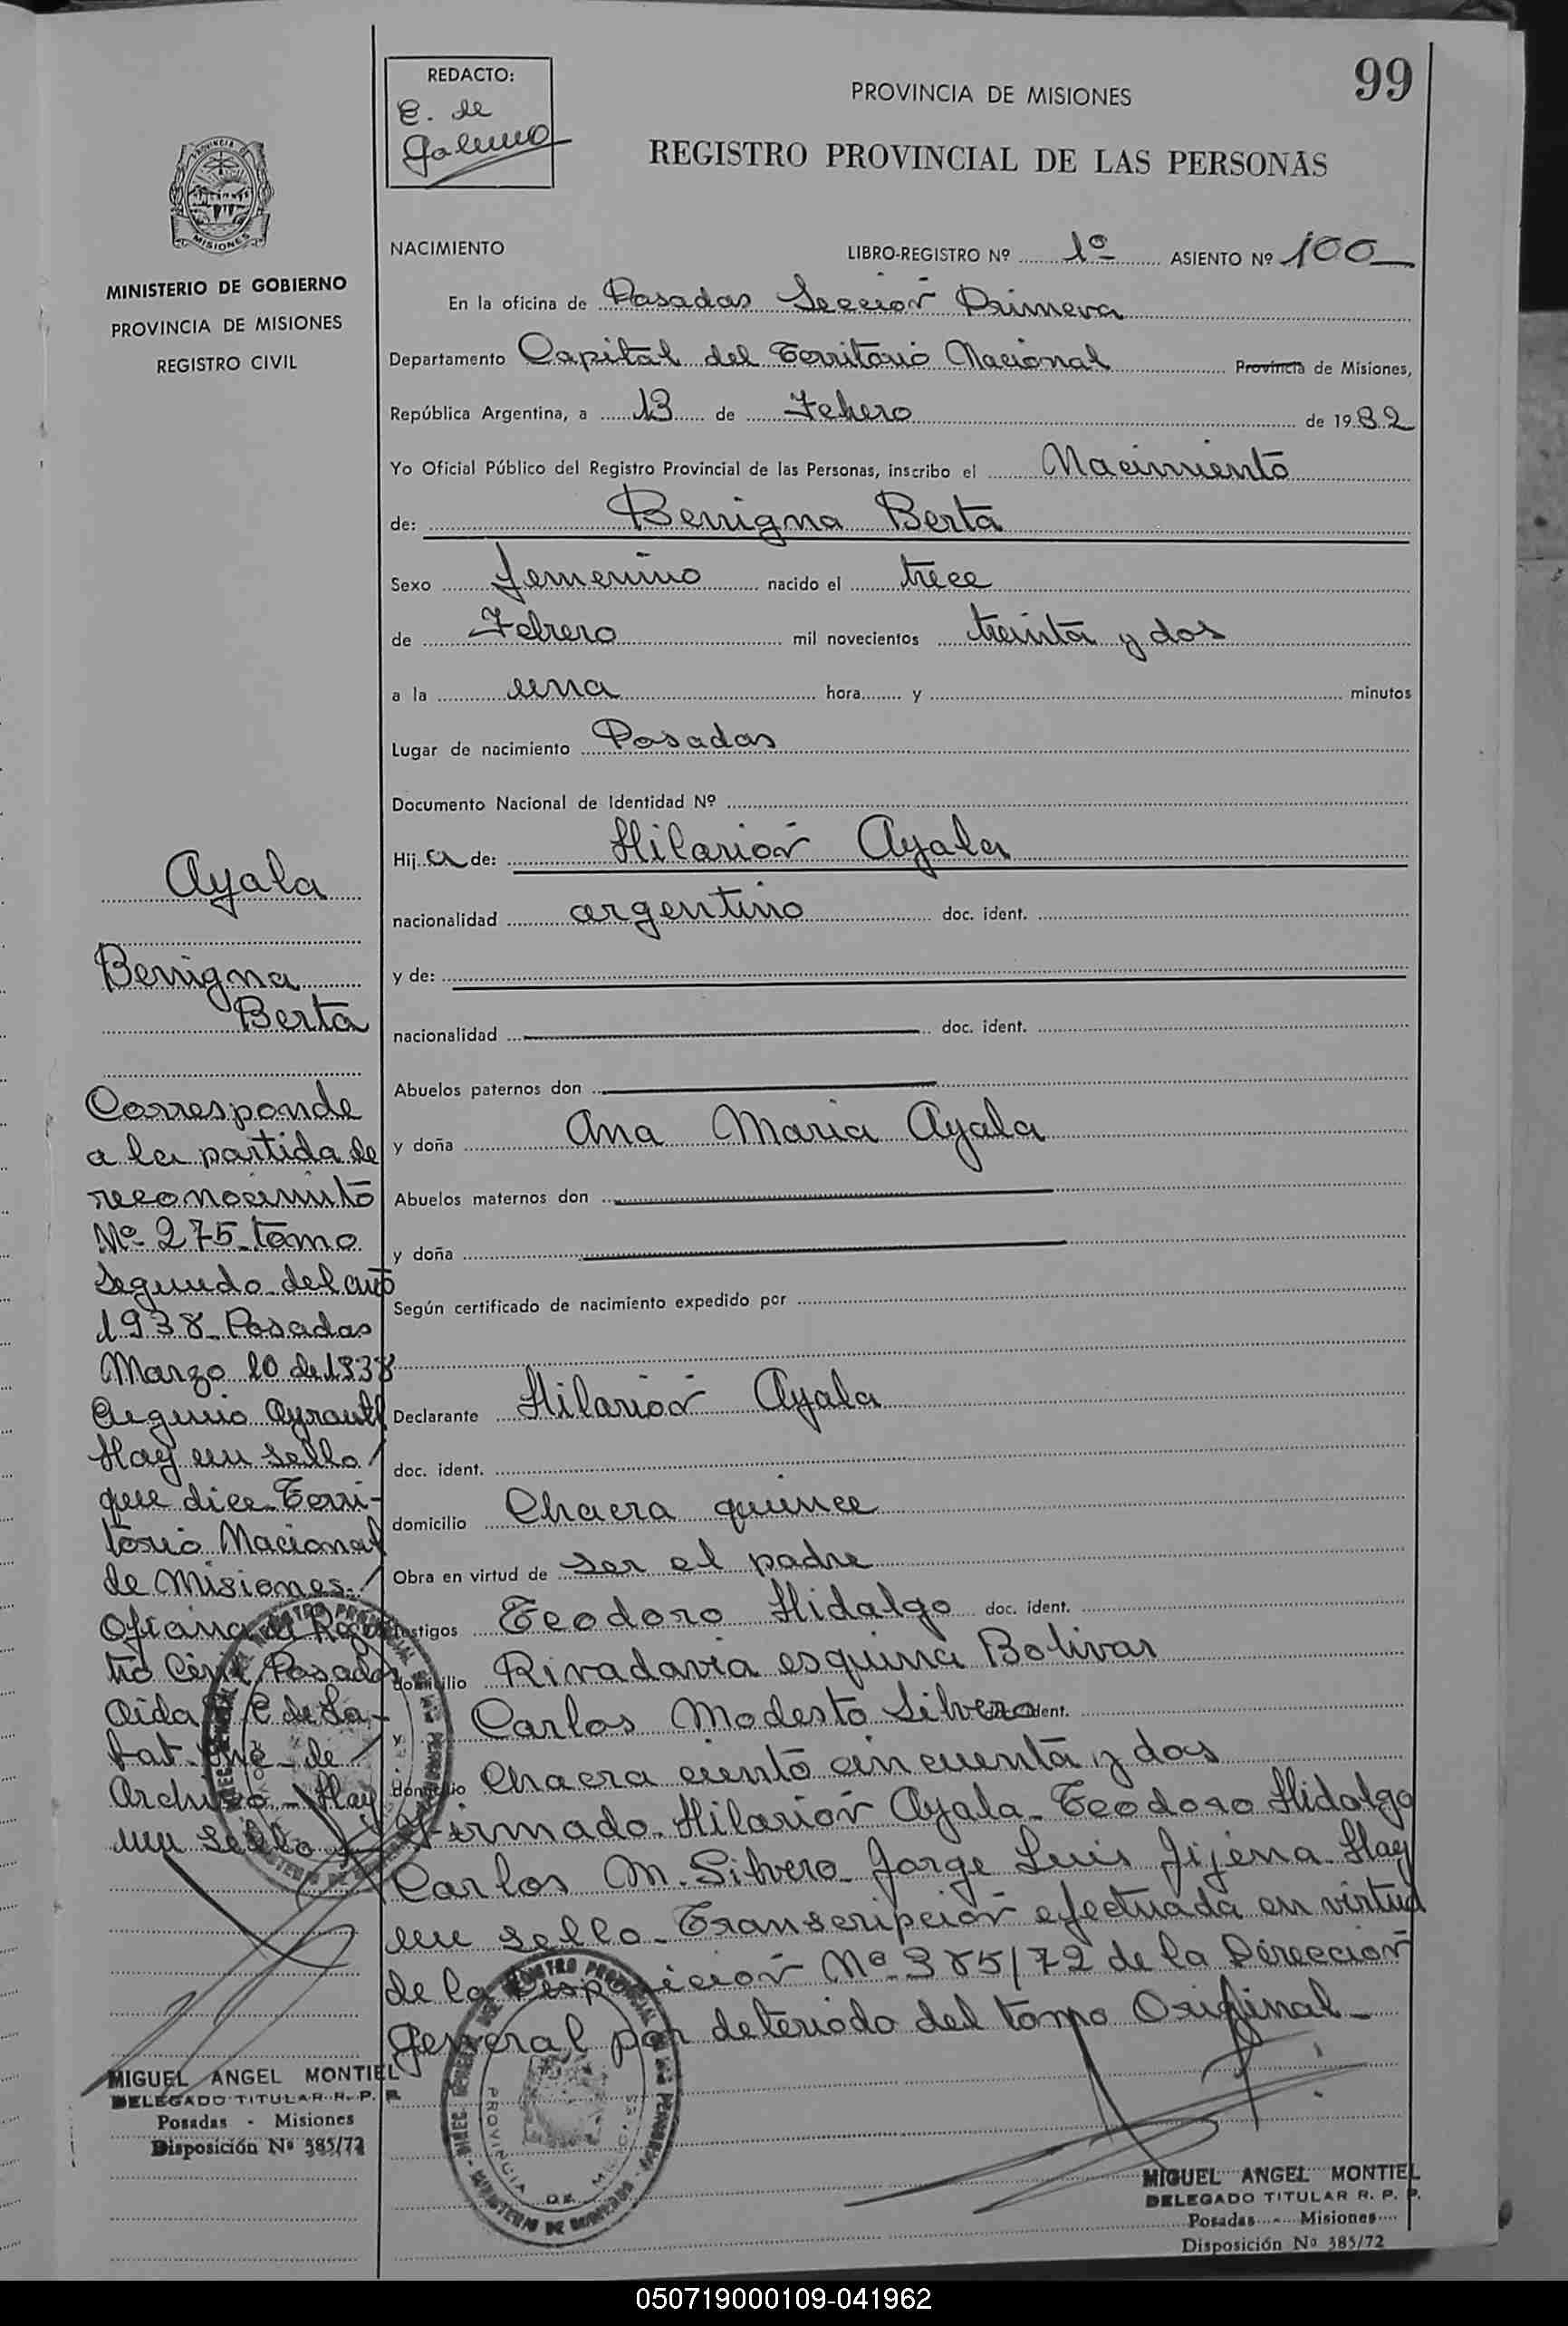 99
REDACTO:
E. de
Galeano
PROVINCIA DE MISIONES
REGISTRO PROVINCIAL DE LAS PERSONAS
MISIONES
MINISTERIO DE GOBIERNO
PROVINCIA DE MISIONES
REGISTRO CIVIL
NACIMIENTO
LIBRO-REGISTRO Nº 1º ASIENTO Nº 100
En la oficina de Posadas Sección Primera
Departamento Capital del Territorio Nacional Provincia de Misiones,
República Argentina, a 13 de Febrero de 1932
Yo Oficial Público del Registro Provincial de las Personas, inscribo el Nacimiento
de: Benigna Berta
Sexo femenino nacido el trece
de Febrero mil novecientos treinta y dos
a la una hora y minutos
Lugar de nacimiento Posadas
Documento Nacional de Identidad Nº
Hij a de: Hilarión Ayala
nacionalidad argentino doc. ident.
y de:
nacionalidad doc. ident.
Abuelos paternos don
y doña Ana Maria Ayala
Abuelos maternos don
y doña
Según certificado de nacimiento expedido por
Declarante Hilarión Ayala
doc. ident.
domicilio Chacra quince
Obra en virtud de ser el padre
testigos Teodoro Hidalgo doc. ident.
domicilio Rivadavia esquina Bolivar
y Carlos Modesto Silvero doc. ident.
domicilio Chacra ciento cincuenta y dos
Firmado. Hilarión Ayala - Teodoro Hidalgo
Carlos M. Silvero - Jorge Luis Jijena - Hay
un sello - Transcripción efectuada en virtud
de la Disposición Nº 385/72 de la Dirección
General por deteriodo del tomo Original -
Ayala
Benigna
Berta
Corresponde
a la partida de
reconocimiento
Nº 275 tomo
segundo del año
1938 - Posadas
Marzo 10 de 1938
Hay un sello
que dice Terri-
torio Nacional
de Misiones.
Oficina de Regis
tro Civil Posadas
Aida C de La-
de
Archivo - Hay
un sello
MIGUEL ANGEL MONTIEL
DELEGADO TITULAR R. P. P.
Posadas - Misiones
Disposición Nº 385/72
MIGUEL ANGEL MONTIEL
DELEGADO TITULAR R. P. P.
Posadas - Misiones
Disposición Nº 385/72
050719000109-041962